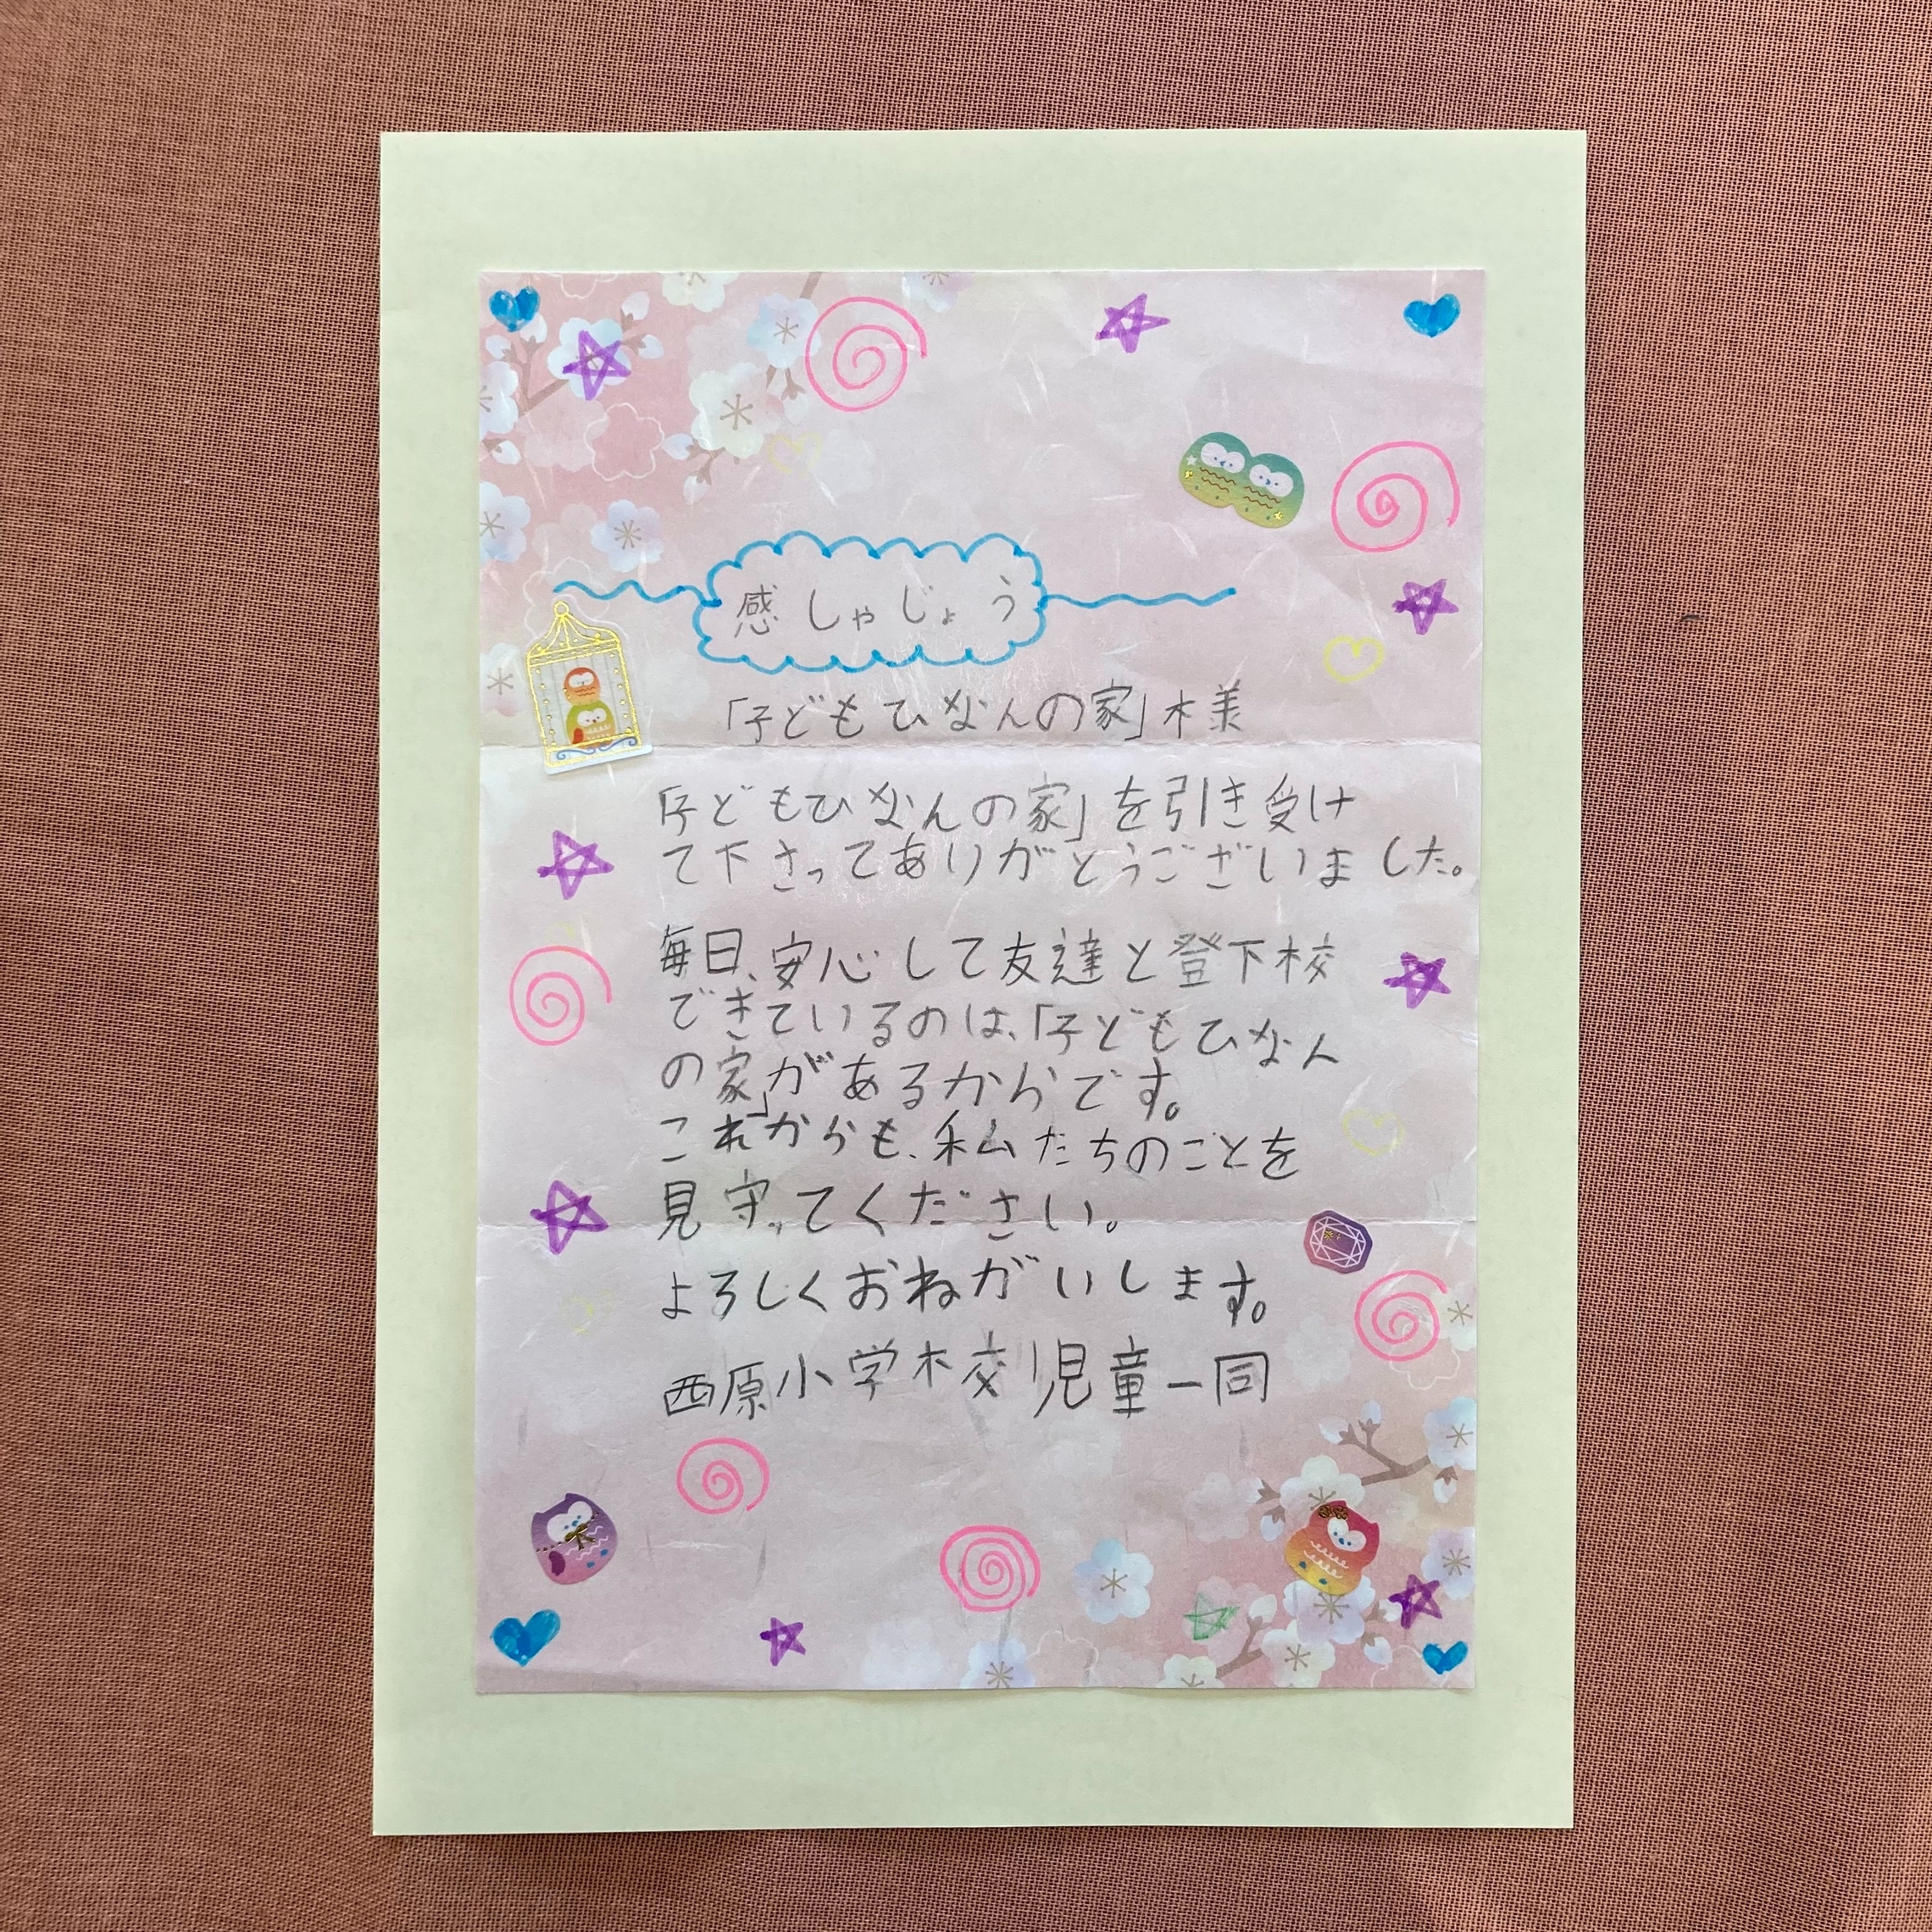 感しゃじょう
「子どもひなんの家」様
「子どもひなんの家」を引き受け
て下さってありがとうございました。
毎日、安心して友達と登下校
できているのは、「子どもひなん
の家」があるからです。
これからも、私たちのことを
見守ってください。
よろしくおねがいします。
西原小学校児童一同